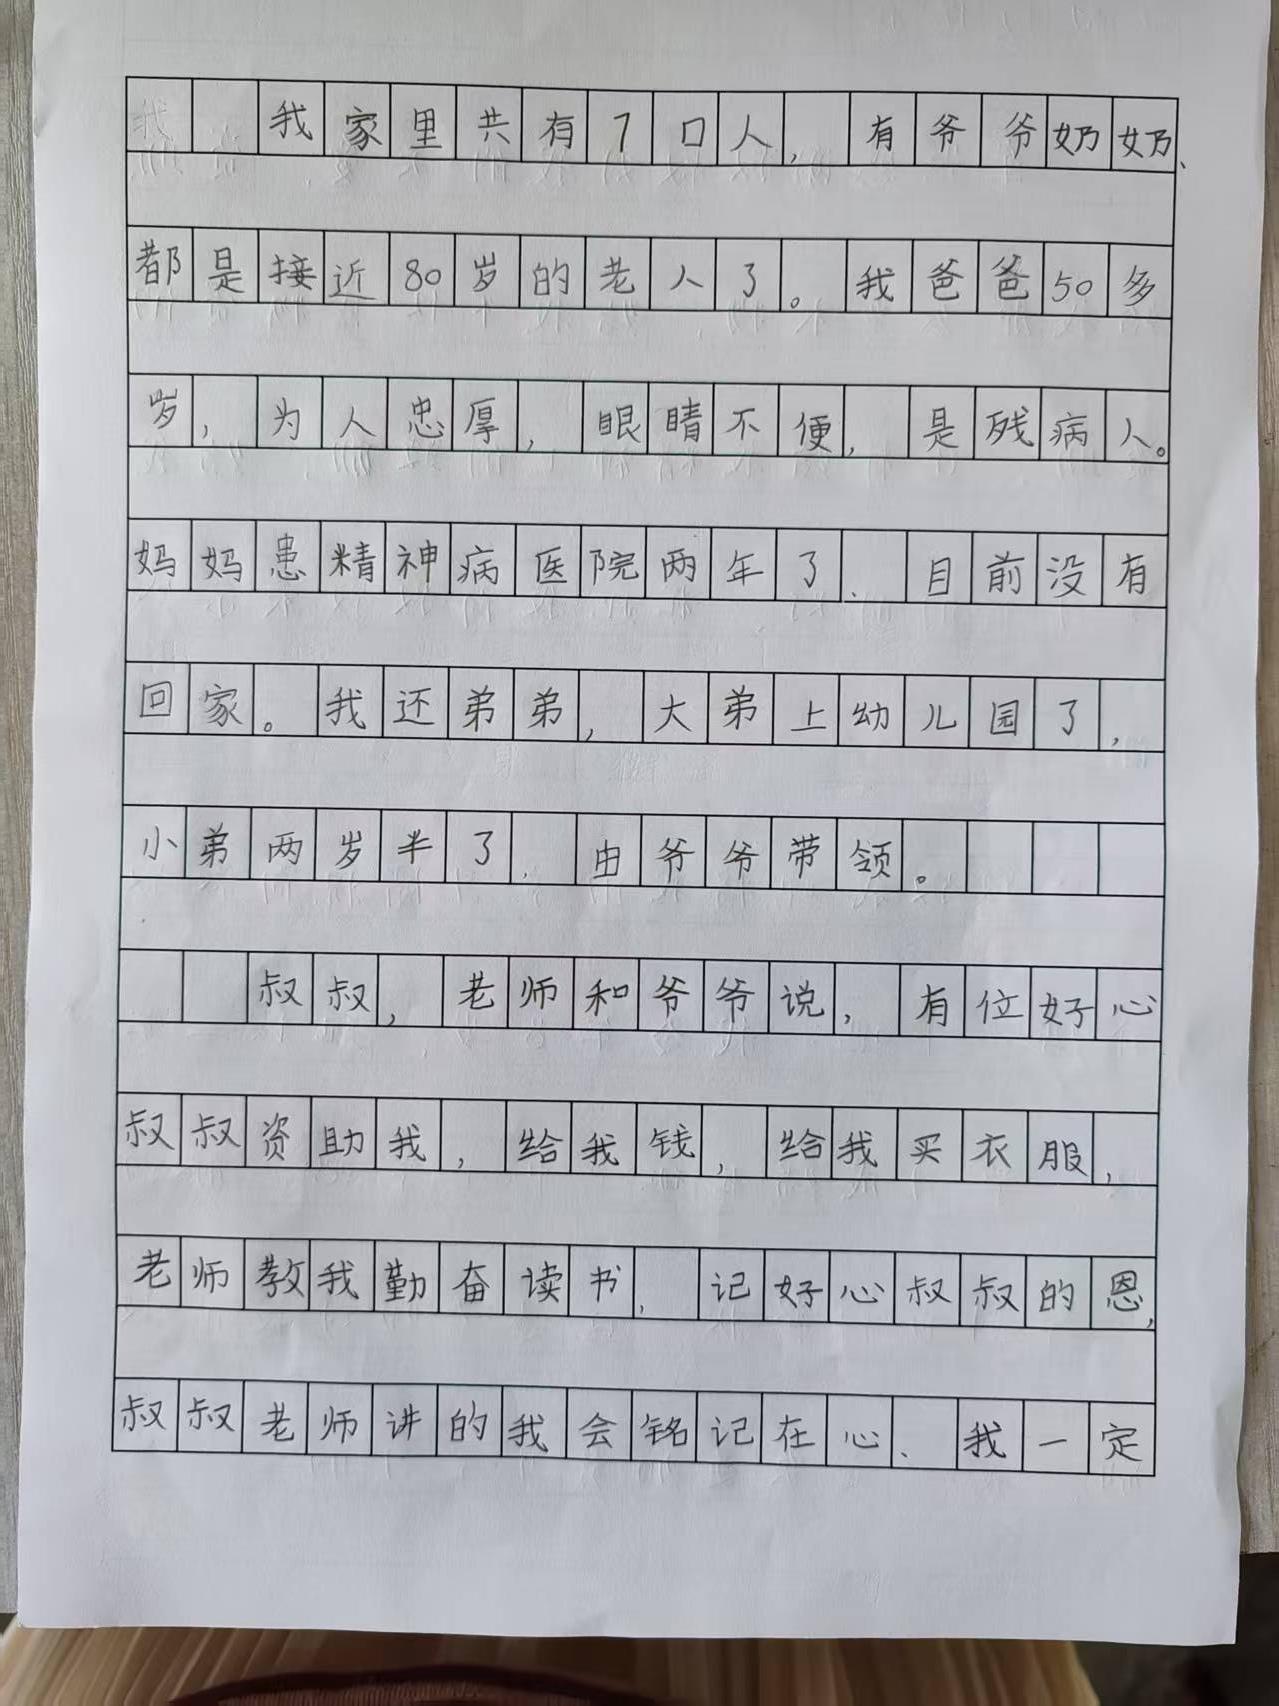 我家里共有7口人，有爷爷奶奶、
都是接近80岁的老人了。我爸爸50多
岁，为人忠厚，眼睛不便，是残病人。
妈妈患精神病医院两年了、目前没有
回家。我还弟弟，大弟上幼儿园了，
小弟两岁半了，由爷爷带领。
叔叔，老师和爷爷说，有位好心
叔叔资助我，给我钱，给我买衣服，
老师教我勤奋读书，记好心叔叔的恩，
叔叔老师讲的我会铭记在心、我一定